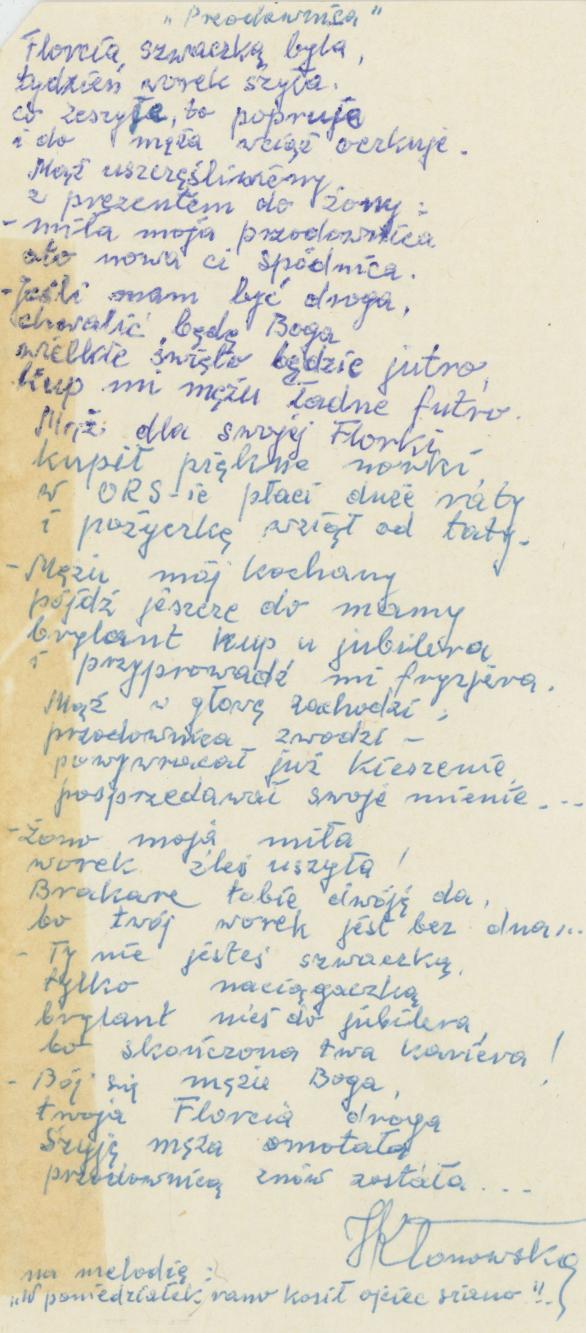 „Przodownica"
Florcia szwaczką była,
tydzień worek szyła.
co zeszyje, to popruje
i do męża wciąż oczkuje.
Mąż uszczęśliwiony
z prezentem do żony:
- miła moja przodownica
oto nowa ci spódnica.
- Jeśli mam być droga,
chwalić będę Boga
wielkie święto będzie jutro,
kup mi mężu ładne futro.
Mąż dla swojej Florki
kupił piękne norki
w ORS-ie płaci duże raty
i pożyczkę wziął od taty.
- Mężu mój kochany
pójdź jeszcze do mamy
brylant kup u jubilera
i przyprowadź mi fryzjera.
Mąż w głowę zachodzi,
przodownica zwodzi -
powywracał już kieszenie,
posprzedawał swoje mienie...
- Żono moja miła
worek źleś uszyła!
Brakarz tobie dwóję da,
bo twój worek jest bez dna...
- Ty nie jesteś szwaczką,
tylko naciągaczką
brylant nieś do jubilera,
bo skończona twa kariera!
- Bój się mężu Boga,
twoja Florcia droga
Szyję męża omotała
przodownicą znów została...
HKlonowska
na melodię:
„W poniedziałek rano kosił ojciec siano".